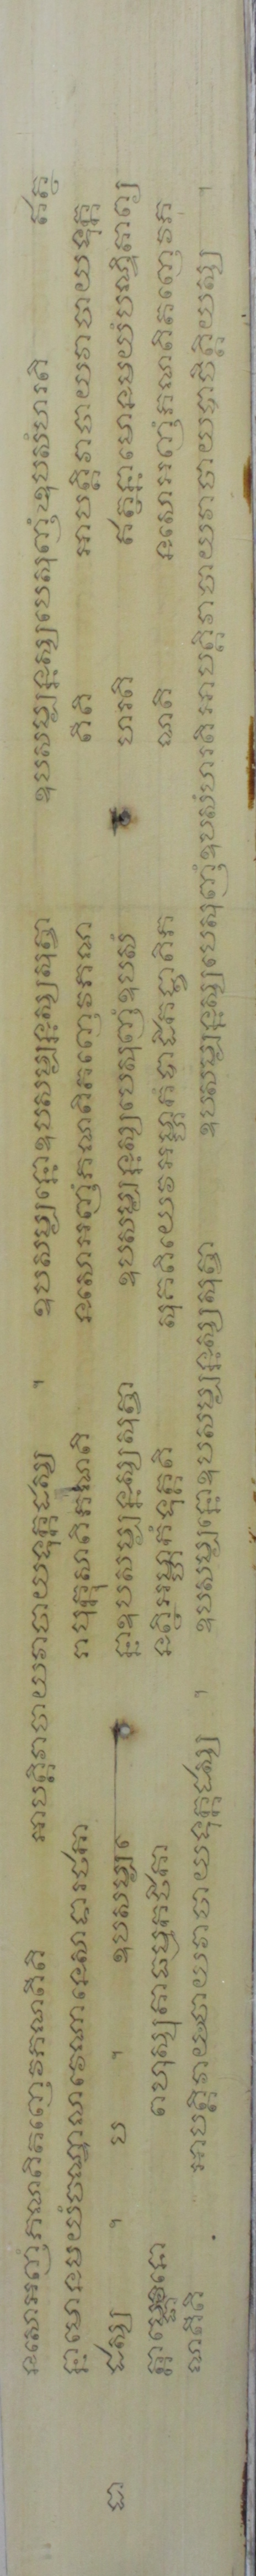 នសោអញ្ញំភណតិតញ្ញេវភណតីតិ អាបត្តិវាចាយវាចាយទុក្កដស្ស ។ ឧបសម្បន្នោឧបសម្បន្នស្សសុត្វា ឧបសម្បន្នស្សបេសុញ្ញំឧបសំហរតិ ឥត្ថន្
នាមោនមយំចណ្ឌាលាវេណានេសាទារថការា បុក្កុសាតិភណតិ នសោអញ្ញំភណតិតញ្ញេវភណ តីតិ អាបត្តិវាចាយវាចាយទុក្ក
ដស្ស ។ ប ។ ឧបសម្បន្នោឧបសម្បន្នស្សសុត្វា ឧបសម្បន្នស្សបេសុញ្ញំឧបសំ ហរតិ ឥត្ថន្នាមោនមយំបណ្ឌិតាព្យ
ត្តាមេធាវិនោ ពហុស្សុតាធម្មកថិកា នត្ថិអម្ហាកំទុគ្គតិ សុគតិយេវអម្ហាកំបាដិកង្ខាតិភ ណតិ នសោអញ្ញំភណតិតញ្ញេវភ
ណតីតិ អាបត្តិវាចាយវាចាយទុក្កដស្ស ។ ឧបសម្បន្នោឧបសម្បន្នស្សសុត្វា ឧបសម្បន្នស្សបេសុញ្ញំឧបសំហរតិ អាបត្តិវាចាយវាចាយបាចិត្តិយស្ស ។